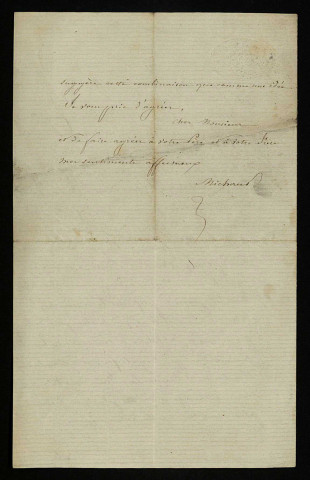 suggère cette combinaison que comme une Idée
Je vous prie d'agréer,
cher Monsieur
et de faire agréer à votre Père et à votre Frère
mes sentiments affectueux
Michaud